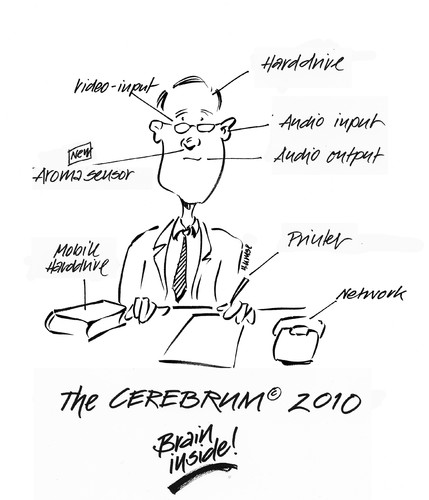 Harddrive
Video-input
Audio input
New
Aroma sensor
Audio output
Mobile
Harddrive
Printer
Network
The CEREBRUM© 2010
Brain
inside!